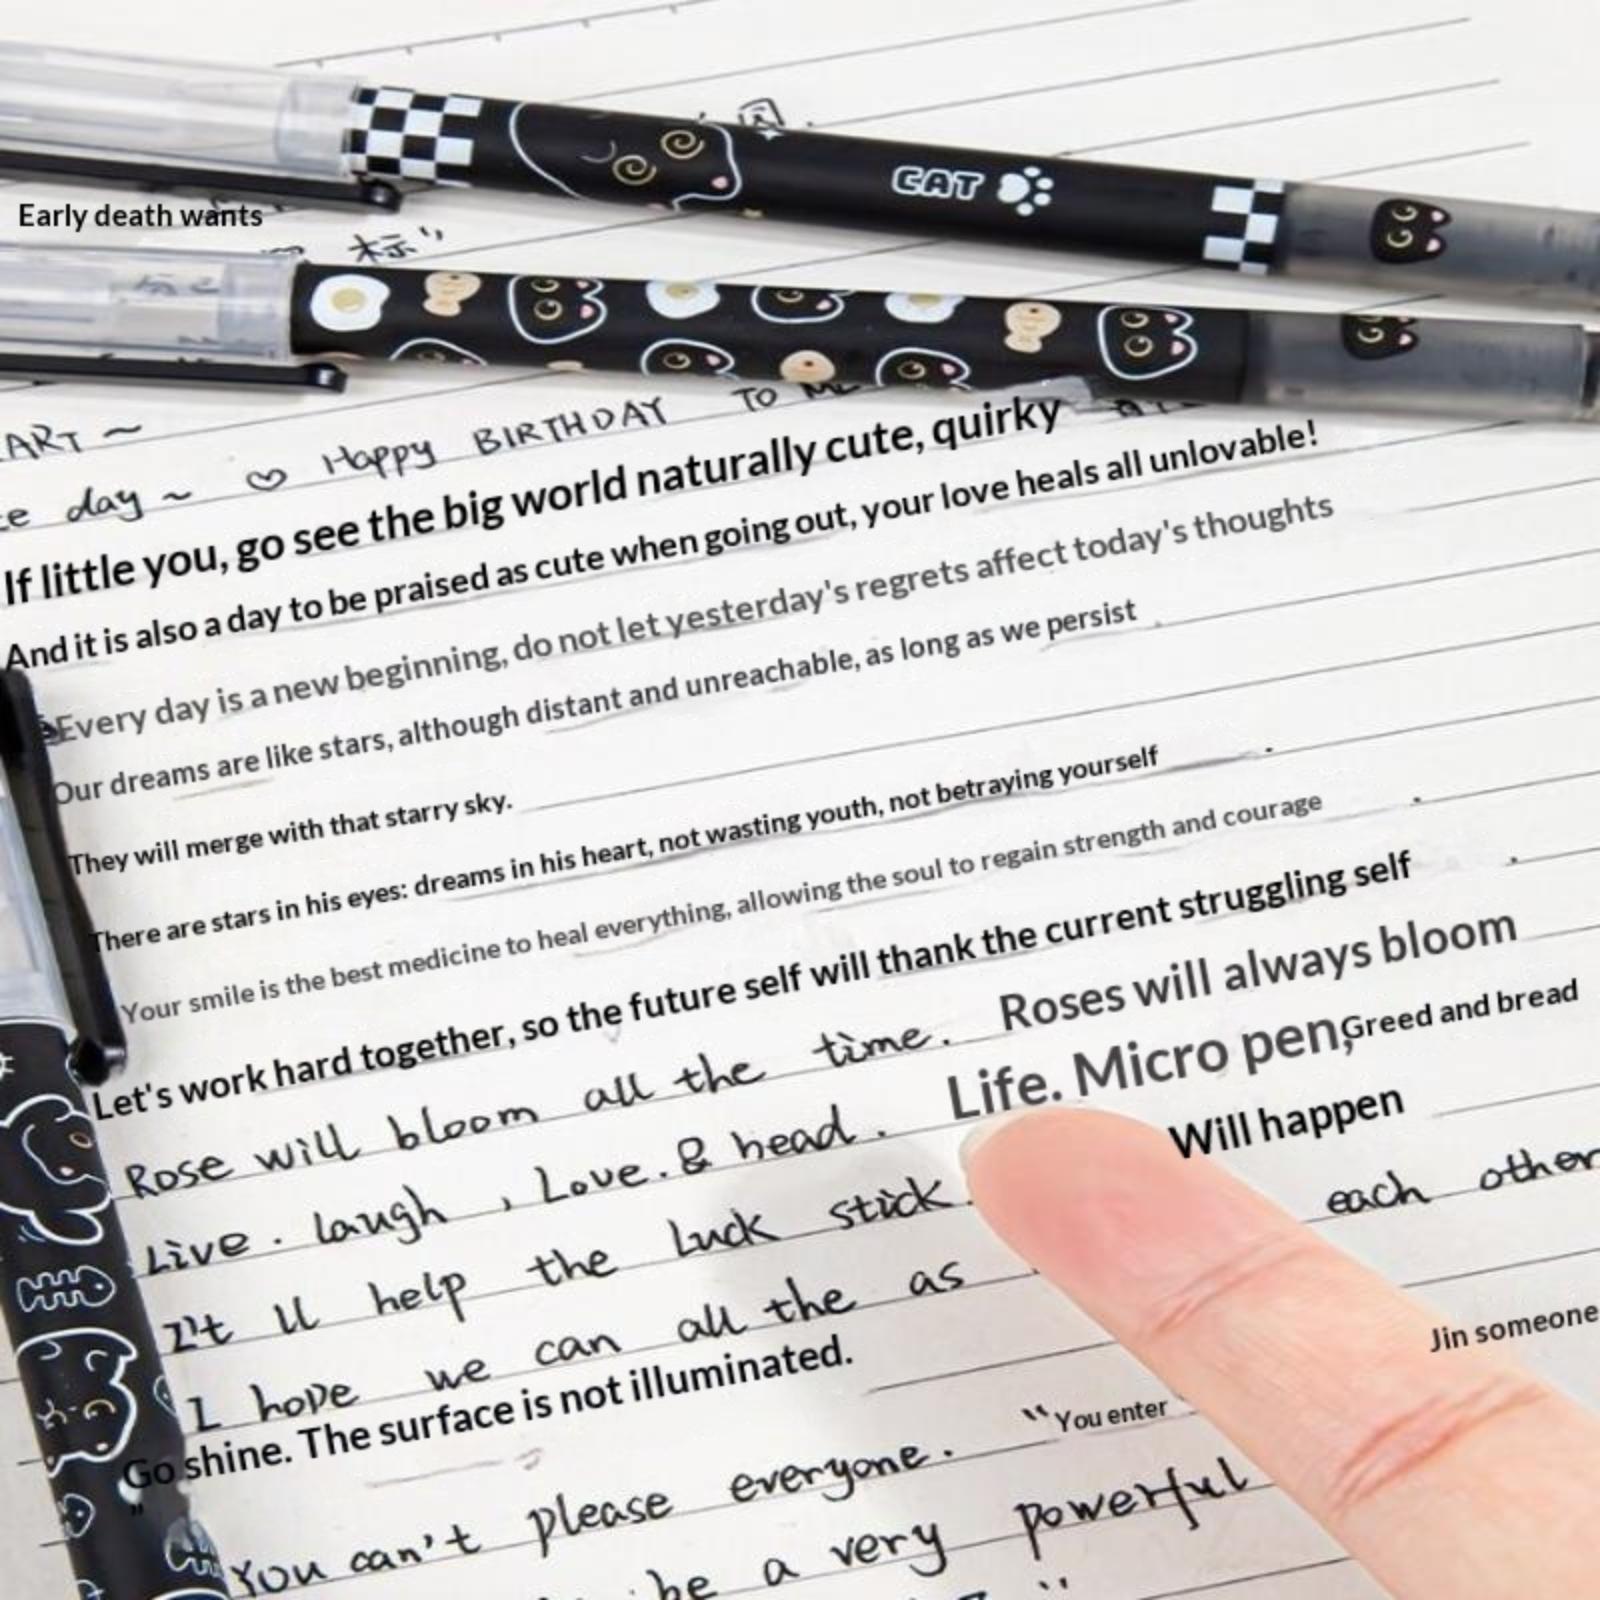 CAT
Early death wants
标"
ART ~
Happy BIRTHDAY TO ME
e day ~
If little you, go see the big world naturally cute, quirky
And it is also a day to be praised as cute when going out, your love heals all unlovable!
Every day is a new beginning, do not let yesterday's regrets affect today's thoughts
Our dreams are like stars, although distant and unreachable, as long as we persist
They will merge with that starry sky.
There are stars in his eyes: dreams in his heart, not wasting youth, not betraying yourself
Your smile is the best medicine to heal everything, allowing the soul to regain strength and courage
Let's work hard together, so the future self will thank the current struggling self
Rose will bloom all the time. Roses will always bloom
Live. laugh, Love. & head. Life. Micro pen, Greed and bread
Will happen
I't ll help the luck stick. each other
I hope we can all the as
Jin someone
Go shine. The surface is not illuminated.
"You enter
You can't please everyone.
be a very powerful